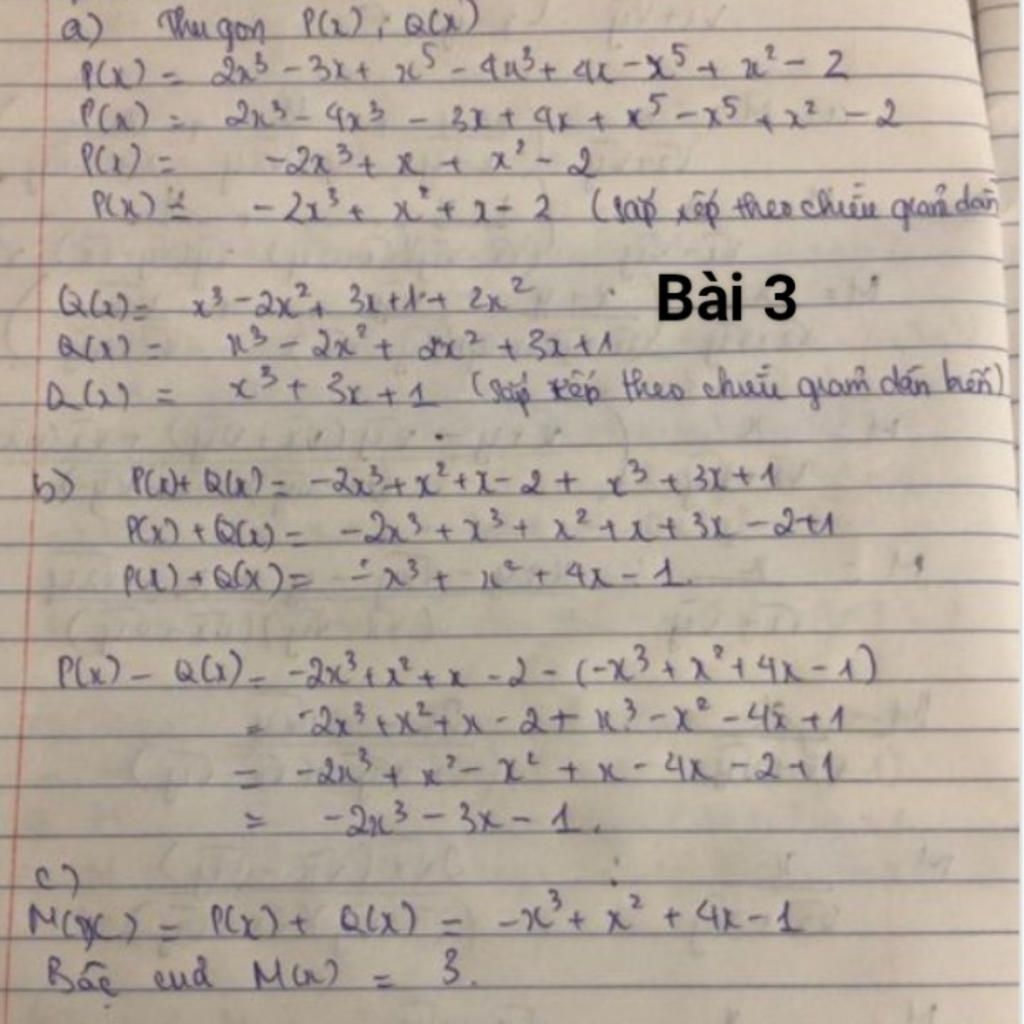 a) Thu gọn P(x); Q(x)
P(x) = 2x³ - 3x + x⁵ - 4x³ + 4x - x⁵ + x² - 2
P(x) = 2x³ - 4x³ - 3x + 4x + x⁵ - x⁵ + x² - 2
P(x) = -2x³ + x + x² - 2
P(x) = -2x³ + x² + x - 2 (sắp xếp theo chiều giảm dần
Bài 3
Q(x) = x³ - 2x² + 3x + 1 + 2x²
Q(x) = x³ - 2x² + 2x² + 3x + 1
Q(x) = x³ + 3x + 1 (sắp xếp theo chiều giảm dần biến)
b) P(x) + Q(x) = -2x³ + x² + x - 2 + x³ + 3x + 1
P(x) + Q(x) = -2x³ + x³ + x² + x + 3x - 2 + 1
P(x) + Q(x) = -x³ + x² + 4x - 1.
P(x) - Q(x) = -2x³ + x² + x - 2 - (-x³ + x² + 4x - 1)
= -2x³ + x² + x - 2 + x³ - x² - 4x + 1
= -2x³ + x² - x² + x - 4x - 2 + 1
= -2x³ - 3x - 1.
c)
M(x) = P(x) + Q(x) = -x³ + x² + 4x - 1
Bậc của M(x) = 3.